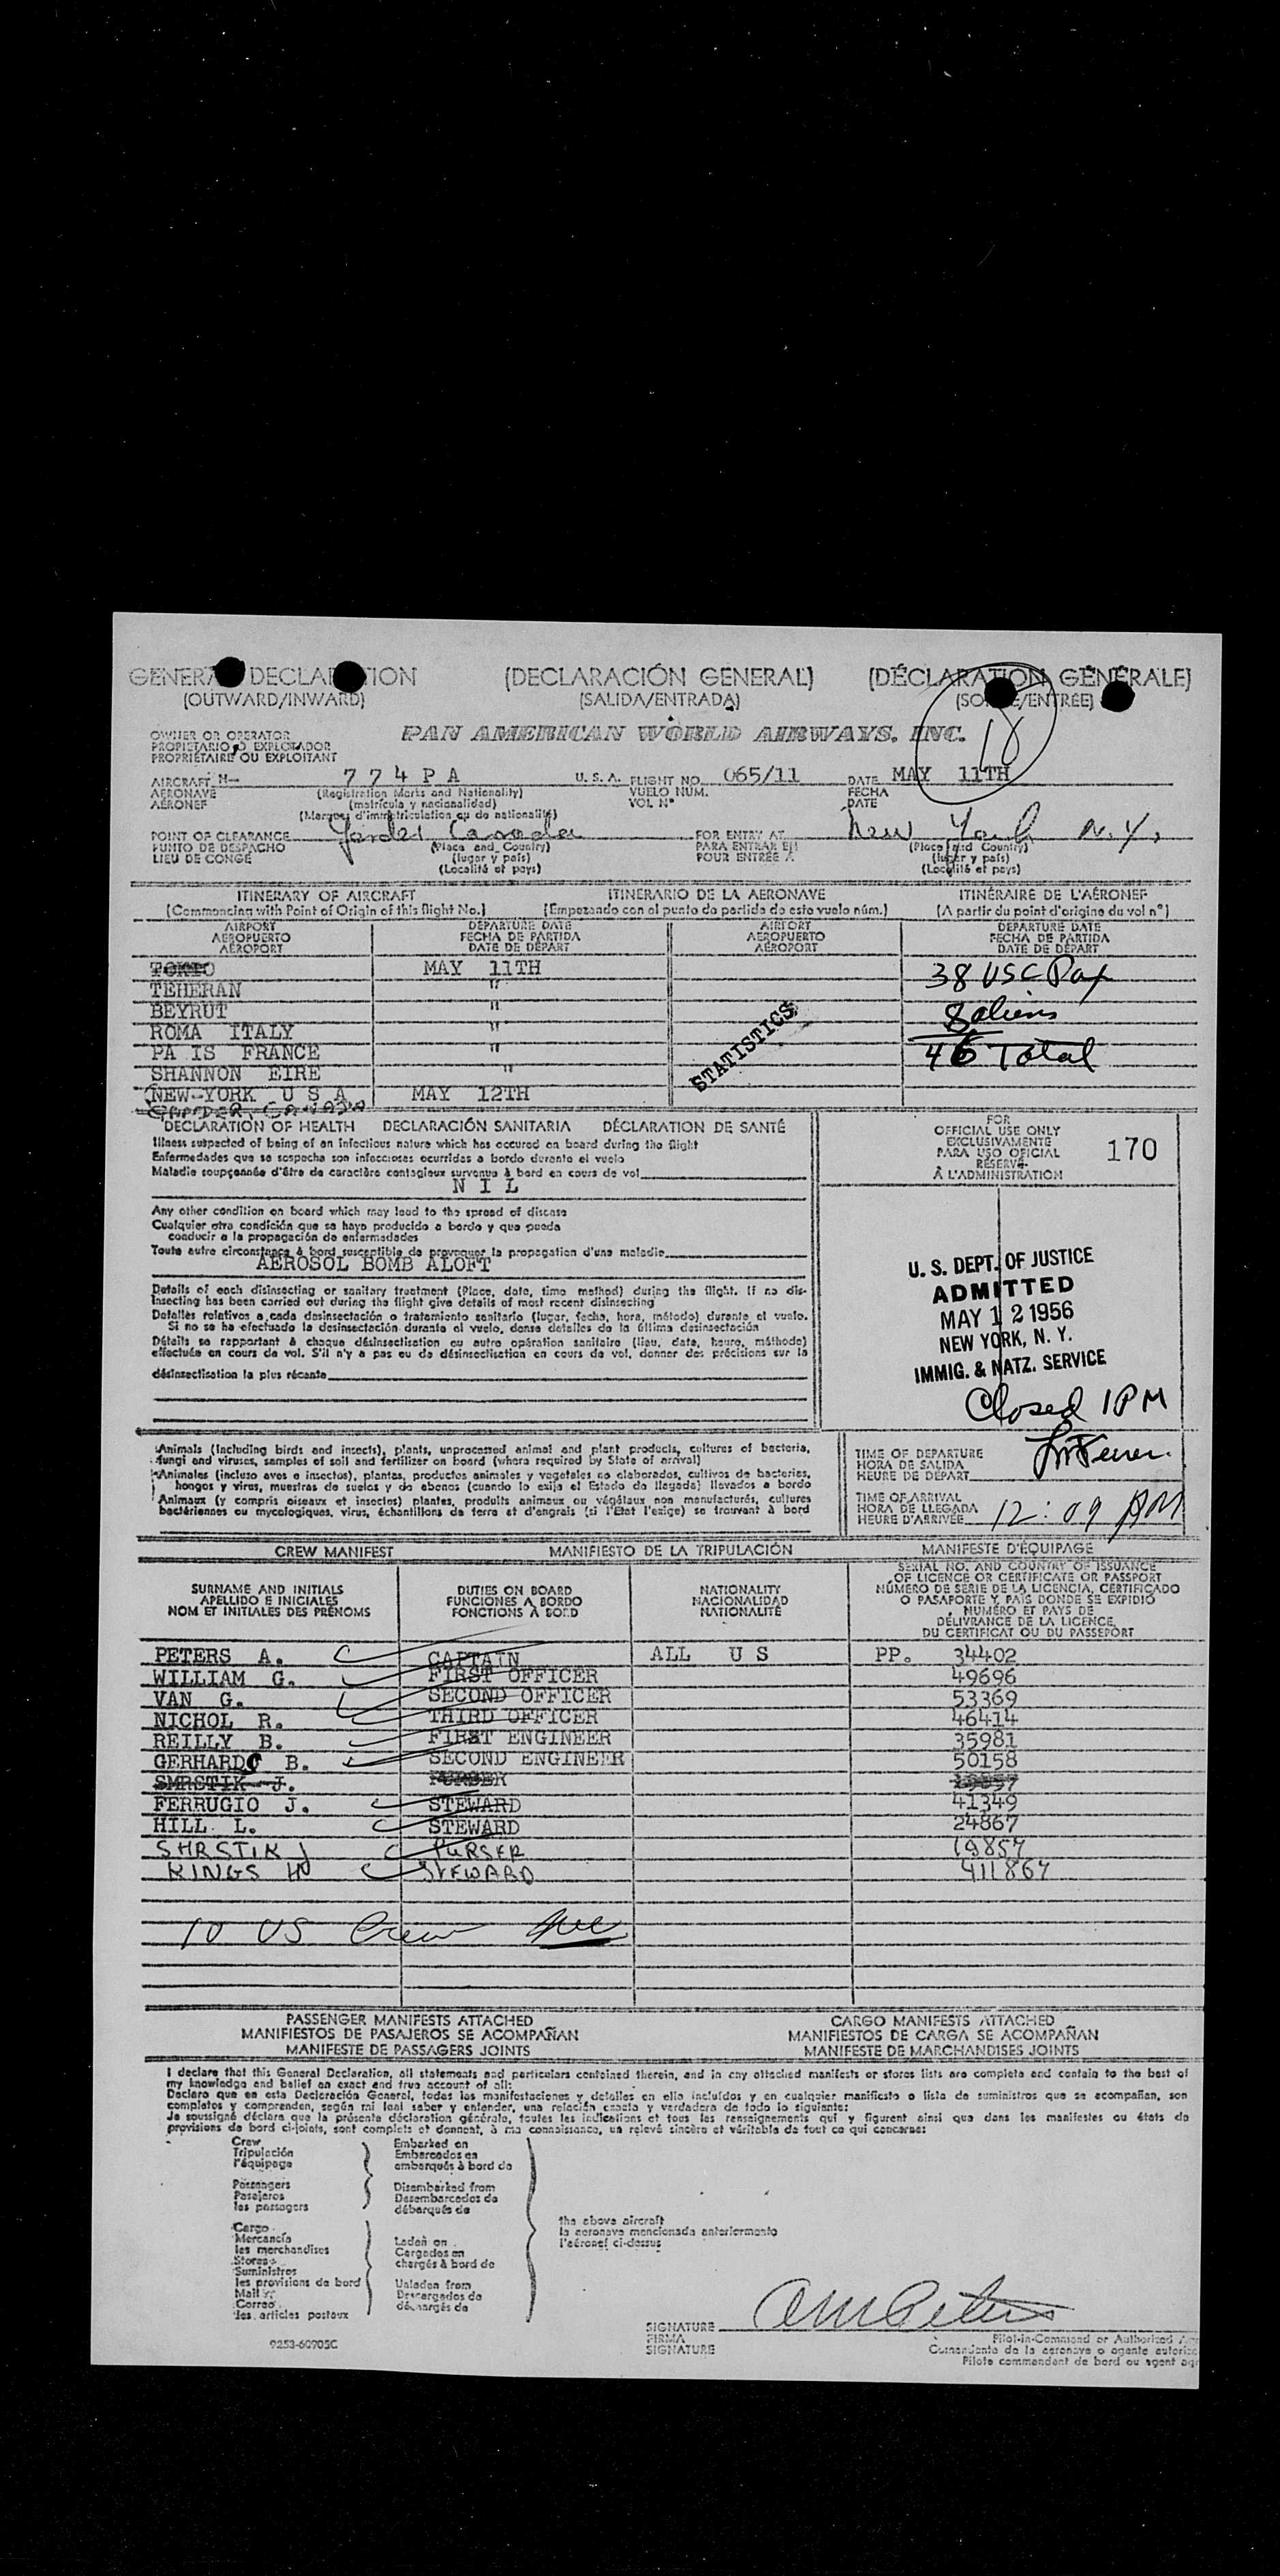 GENERAL DECLARATION (DECLARACIÓN GENERAL) (DÉCLARATION GÉNÉRALE)
(OUTWARD/INWARD) (SALIDA/ENTRADA) (SORTIE/ENTRÉE)
18
OWNER OR OPERATOR
PROPIETARIO O EXPLOTADOR
PROPRIÉTAIRE OU EXPLOITANT
PAN AMERICAN WORLD AIRWAYS, INC.
AIRCRAFT N- 774PA U.S.A. FLIGHT NO. 065/11 DATE MAY 11TH
AERONAVE (Registration Marks and Nationality) VUELO NUM. FECHA
AÉRONEF (matrícula y nacionalidad) VOL Nº DATE
(Marques d'immatriculation ou de nationalité)
POINT OF CLEARANCE Gander Canada FOR ENTRY AT New York N.Y.
PUNTO DE DESPACHO (Place and Country) PARA ENTRAR EN (Place and Country)
LIEU DE CONGÉ (lugar y país) POUR ENTRÉE À (lugar y país)
(Localité et pays) (Localité et pays)
ITINERARY OF AIRCRAFT ITINERARIO DE LA AERONAVE ITINÉRAIRE DE L'AÉRONEF
(Commencing with Point of Origin of this flight No.) (Empezando con el punto de partida de este vuelo núm.) (A partir du point d'origine du vol nº)
AIRPORT DEPARTURE DATE AIRPORT DEPARTURE DATE
AEROPUERTO FECHA DE PARTIDA AEROPUERTO FECHA DE PARTIDA
AÉROPORT DATE DE DÉPART AÉROPORT DATE DE DÉPART
TOKYO MAY 11TH 38 USC Pax
TEHERAN "
BEYRUT " 8 aliens
ROMA ITALY "
PA IS FRANCE " 46 Total
SHANNON EIRE "
NEW-YORK U S A MAY 12TH
GANDER, CANADA
STATISTICS
DECLARATION OF HEALTH DECLARACIÓN SANITARIA DÉCLARATION DE SANTÉ
Illness suspected of being of an infectious nature which has occured on board during the flight
Enfermedades que se sospecha son infecciosas ocurridas a bordo durante el vuelo
Maladie soupçonnée d'être de caractère contagieux survenue à bord en cours de vol
N I L
Any other condition on board which may lead to the spread of disease
Cualquier otra condición que se haya producido a bordo y que pueda
conducir a la propagación de enfermedades
Toute autre circonstance à bord susceptible de provoquer la propagation d'une maladie
AEROSOL BOMB ALOFT
Details of each disinsecting or sanitary treatment (Place, date, time method) during the flight. If no dis-
insecting has been carried out during the flight give details of most recent disinsecting
Detalles relativos a cada desinsectación o tratamiento sanitario (lugar, fecha, hora, método) durante el vuelo.
Si no se ha efectuado la desinsectación durante el vuelo, dense detalles de la última desinsectación
Détails se rapportant à chaque désinsectisation ou autre opération sanitaire (lieu, date, heure, méthode)
effectuée en cours de vol. S'il n'y a pas eu de désinsectisation en cours de vol, donner des précisions sur la
désinsectisation la plus récente
FOR
OFFICIAL USE ONLY
EXCLUSIVAMENTE
PARA USO OFICIAL
RÉSERVÉ
À L'ADMINISTRATION
170
U. S. DEPT. OF JUSTICE
ADMITTED
MAY 12 1956
NEW YORK, N. Y.
IMMIG. & NATZ. SERVICE
Closed 1PM
Animals (including birds and insects), plants, unprocessed animal and plant products, cultures of bacteria,
fungi and viruses, samples of soil and fertilizer on board (where required by State of arrival)
Animales (incluso aves o insectos), plantas, productos animales y vegetales no elaborados, cultivos de bacterias,
hongos y virus, muestras de suelos y de abonos (cuando lo exija el Estado de llegada) llevados a bordo
Animaux (y compris oiseaux et insectes) plantes, produits animaux ou végétaux non manufacturés, cultures
bactériennes ou mycologiques, virus, échantillons de terre et d'engrais (si l'État l'exige) se trouvant à bord
TIME OF DEPARTURE
HORA DE SALIDA
HEURE DE DÉPART
TIME OF ARRIVAL
HORA DE LLEGADA
HEURE D'ARRIVÉE 12:09 PM
CREW MANIFEST MANIFIESTO DE LA TRIPULACIÓN MANIFESTE D'ÉQUIPAGE
SURNAME AND INITIALS
APELLIDO E INICIALES
NOM ET INITIALES DES PRÉNOMS
DUTIES ON BOARD
FUNCIONES A BORDO
FONCTIONS À BORD
NATIONALITY
NACIONALIDAD
NATIONALITÉ
SERIAL NO. AND COUNTRY OF ISSUANCE
OF LICENCE OR CERTIFICATE OR PASSPORT
NÚMERO DE SERIE DE LA LICENCIA, CERTIFICADO
O PASAPORTE Y PAÍS DONDE SE EXPIDIÓ
NUMÉRO ET PAYS DE
DÉLIVRANCE DE LA LICENCE,
DU CERTIFICAT OU DU PASSEPORT
PETERS A. CAPTAIN ALL U S PP. 34402
WILLIAM G. FIRST OFFICER 49696
VAN G. SECOND OFFICER 53369
NICHOL R. THIRD OFFICER 46414
REILLY B. FIRST ENGINEER 35981
GERHARDC B. SECOND ENGINEER 50158
SMRSTIK J. PURSER 19857
FERRUGIO J. STEWARD 41349
HILL L. STEWARD 24867
SHRSTIK J PURSER 19857
KINGS H STEWARD 411867
10 US Crew
PASSENGER MANIFESTS ATTACHED CARGO MANIFESTS ATTACHED
MANIFIESTOS DE PASAJEROS SE ACOMPAÑAN MANIFIESTOS DE CARGA SE ACOMPAÑAN
MANIFESTE DE PASSAGERS JOINTS MANIFESTE DE MARCHANDISES JOINTS
I declare that this General Declaration, all statements and particulars contained therein, and in any attached manifests or stores lists are complete and contain to the best of
my knowledge and belief an exact and true account of all:
Declaro que en esta Declaración General, todas las manifestaciones y detalles en ella incluídos y en cualquier manifiesto o lista de suministros que se acompañan, son
completos y comprenden, según mi leal saber y entender, una relación exacta y verdadera de todo lo siguiente:
Je soussigné déclare que la présente déclaration générale, toutes les indications et tous les renseignements qui y figurent ainsi que dans les manifestes ou états de
provisions de bord ci-joints, sont complets et donnent, à ma connaissance, un relevé sincère et véritable de tout ce qui concerne:
Crew Embarked on
Tripulación Embarcados en
l'équipage embarqués à bord de
Passengers Disembarked from
Pasajeros Desembarcados de
les passagers débarqués de
the above aircraft
la aeronave mencionada anteriormente
l'aéronef ci-dessus
Cargo
Mercancía Laden on
les merchandises Cargados en
Stores chargés à bord de
Suministros
les provisions de bord Unladen from
Mail Descargados de
Correo déchargés de
les articles postaux
SIGNATURE AM Peters
FIRMA
SIGNATURE
Pilot-in-Command or Authorized
Comandante de la aeronave o agente
Pilote commandant de bord ou agent
9253-60705C